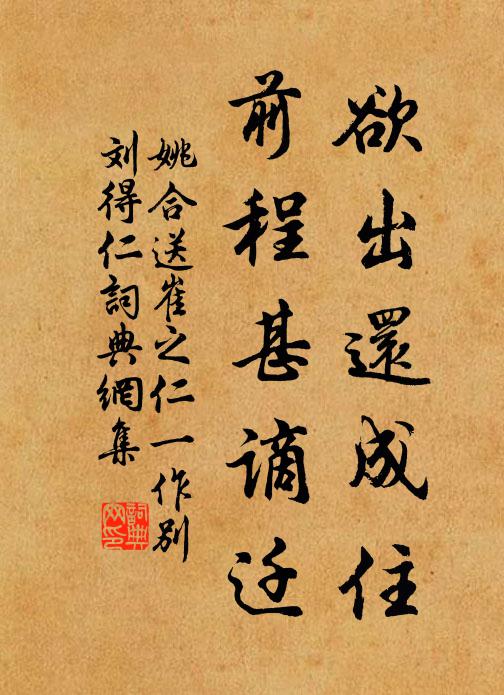 欲出還成住
前程甚谪迁
姚合送崔之仁一作别
刘得仁詞典網集
詞典网印